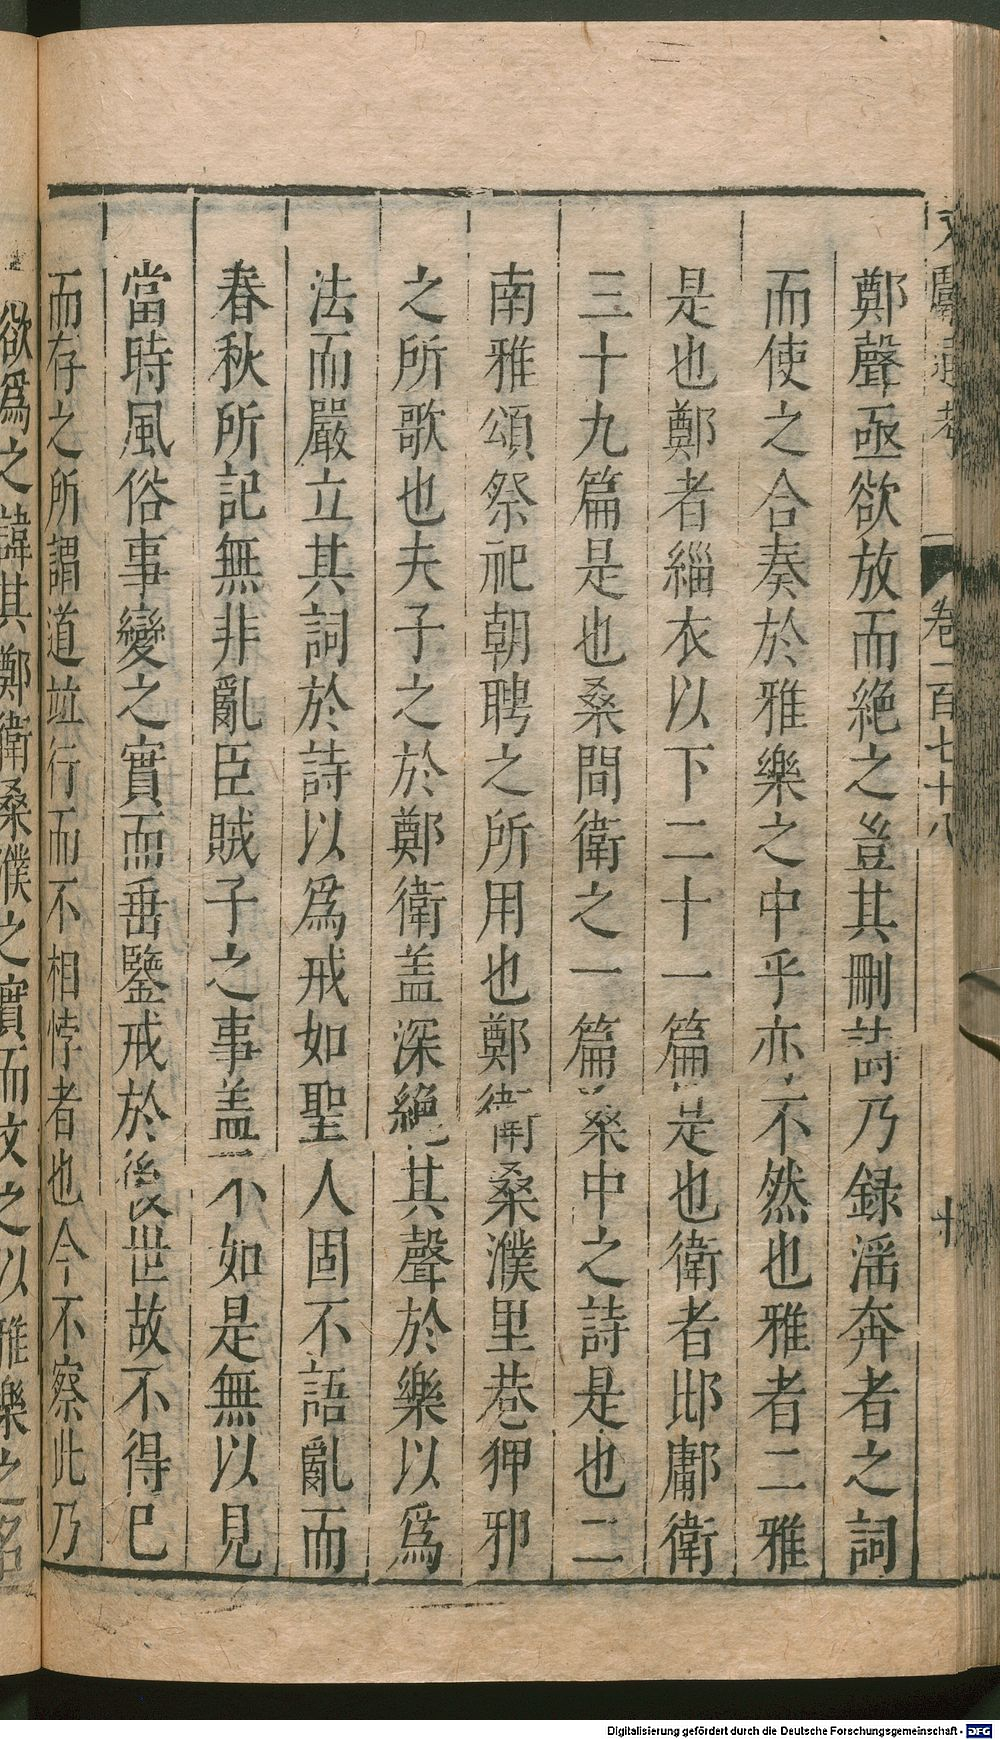 卷一百七十八
十
鄭聲亟欲放而絶之豈其刪詩乃録滛奔者之詞
而使之合奏於雅樂之中乎亦不然也雅者二雅
是也鄭者緇衣以下二十一篇是也衛者邶鄘衛
三十九篇是也桑間衛之一篇桑中之詩是也二
南雅頌祭祀朝聘之所用也鄭衛桑濮里巷狎邪
之所歌也夫子之於鄭衛盖深絶其聲於樂以爲
法而嚴立其詞於詩以爲戒如聖人固不語亂而
春秋所記無非亂臣賊子之事盖不如是無以見
當時風俗事變之實而垂鑒戒於後世故不得已
而存之所謂道並行而不相悖者也今不察此乃
欲爲之諱其鄭衛桑濮之實而文之以雅樂之名
Digitalisierung gefördert durch die Deutsche Forschungsgemeinschaft - DFG